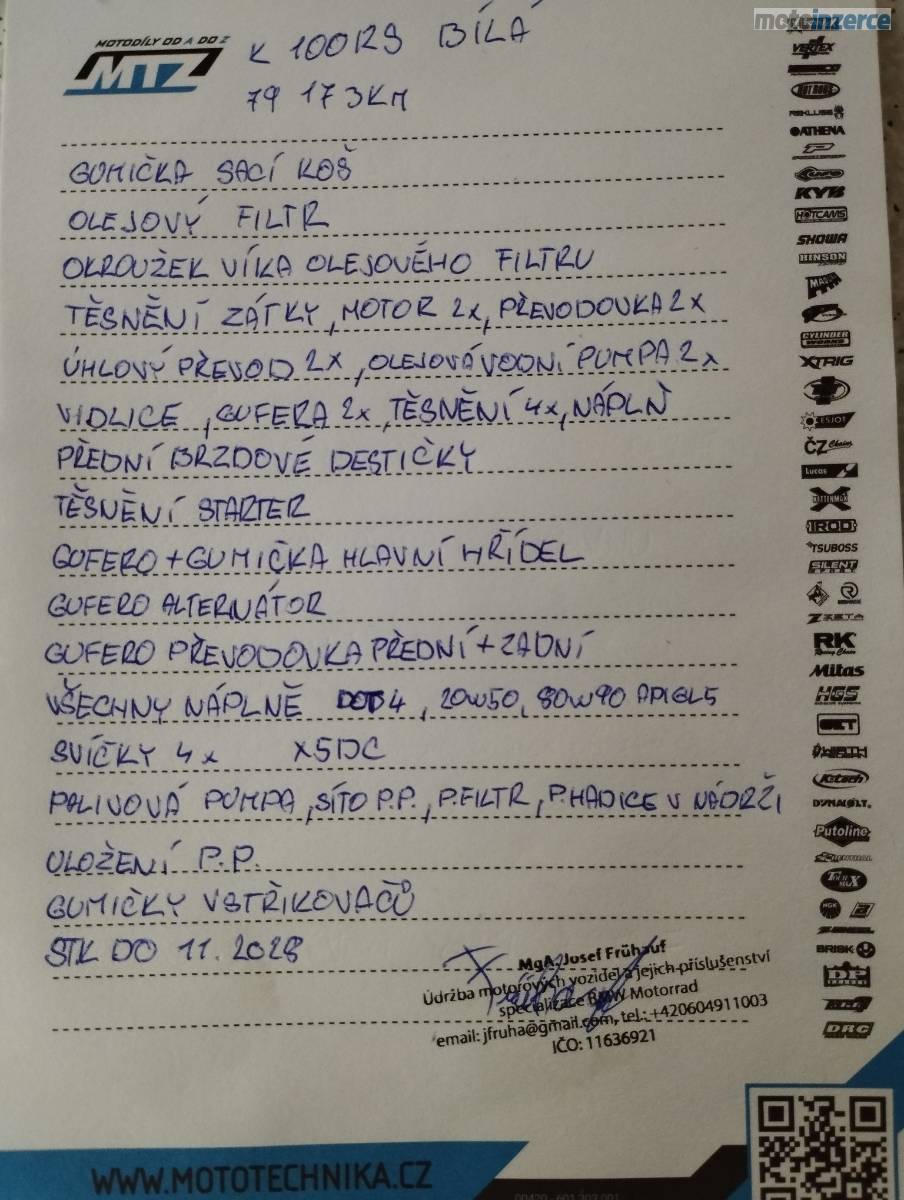 motoinzerce
MOTODÍLY OD A DO Z
MTZ
K 100RS BÍLÁ
79 173KM
GUMIČKA SACÍ KOŠ
OLEJOVÝ FILTR
OKROUŽEK VÍKA OLEJOVÉHO FILTRU
TĚSNĚNÍ ZÁTKY, MOTOR 2x, PŘEVODOVKA 2x
ÚHLOVÝ PŘEVOD 2x, OLEJOVÁ VODNÍ PUMPA 2x
VIDLICE, GUFERA 2x, TĚSNĚNÍ 4x, NÁPLŇ
PŘEDNÍ BRZDOVÉ DESTIČKY
TĚSNĚNÍ STARTER
GUFERO + GUMIČKA HLAVNÍ HŘÍDEL
GUFERO ALTERNÁTOR
GUFERO PŘEVODOVKA PŘEDNÍ + ZADNÍ
VŠECHNY NÁPLNĚ DOT 4, 20W50, 80W90 API GL5
SVÍČKY 4x X5DC
PALIVOVÁ PUMPA, SÍTO P.P., P.FILTR, P.HADICE V NÁDRŽI
ULOŽENÍ P.P.
GUMIČKY VSTŘIKOVAČŮ
STK DO 11. 2028
MgA. Josef Frühauf
Údržba motorových vozidel a jejich příslušenství
specializace BMW Motorrad
email: jfruha@gmail.com, tel.: +420604911003
IČO: 11636921
VERTEX
HOT RODS
REKLUSE
ATHENA
KYB
HOTCAMS
SHOWA
HINSON
CYLINDER WORKS
XTRIG
ESJOT
ČZ Chains
Lucas
KETTENMAX
IROD
TSUBOSS
SILENT
ZETA
RK
Mitas
HGS
JET
WIRTH
K-tech
DYNAVOLT
Putoline
RENTHAL
TOUR MAX
NGK
BRISK
DP
DRC
WWW.MOTOTECHNIKA.CZ